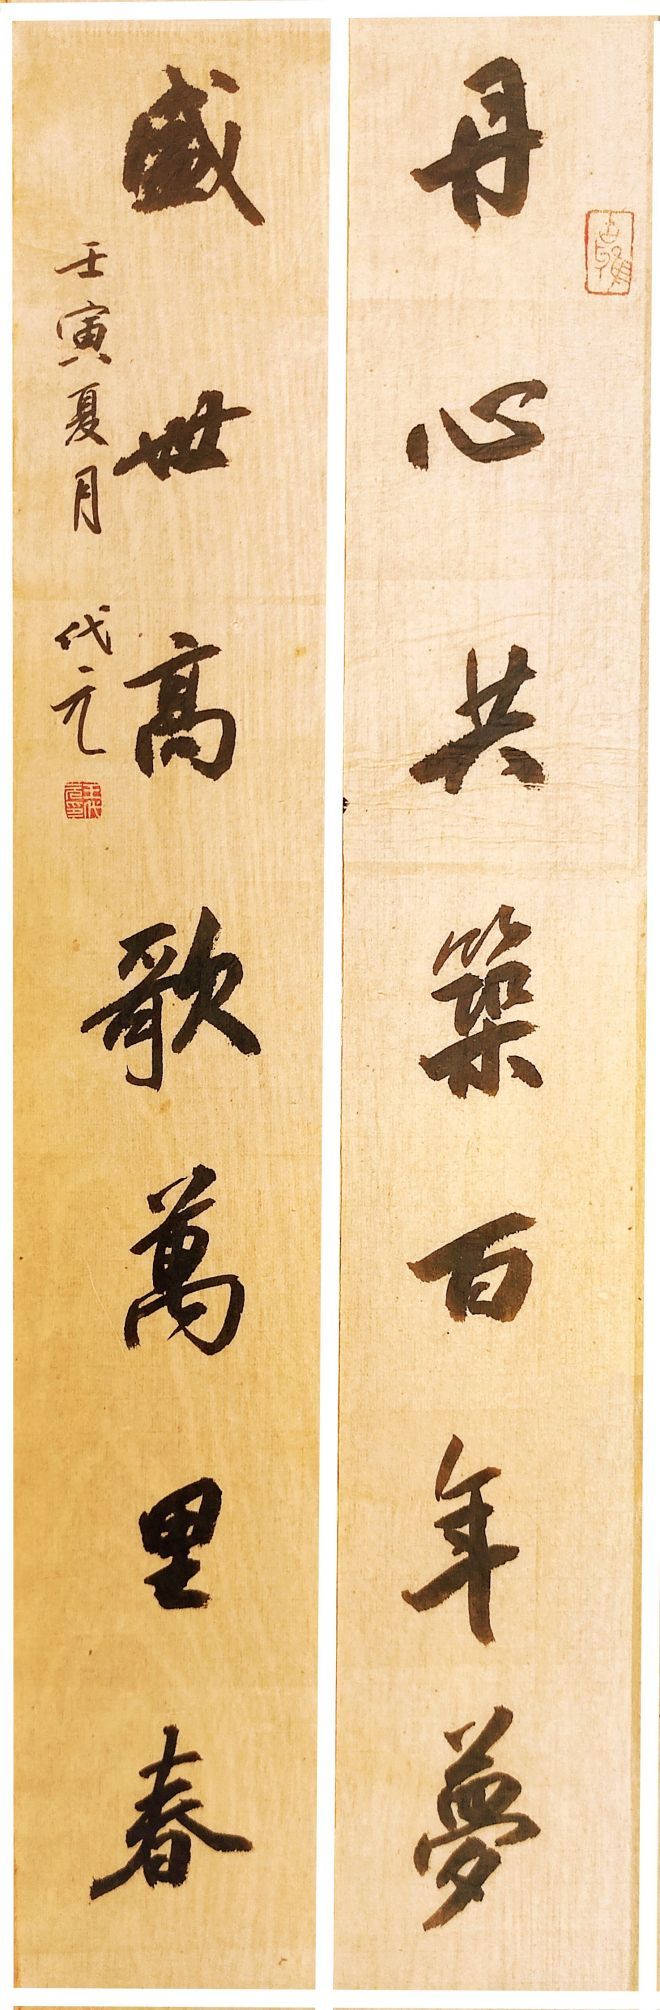 丹心共築百年夢
盛世高歌萬里春
壬寅夏月
代元
王代元印